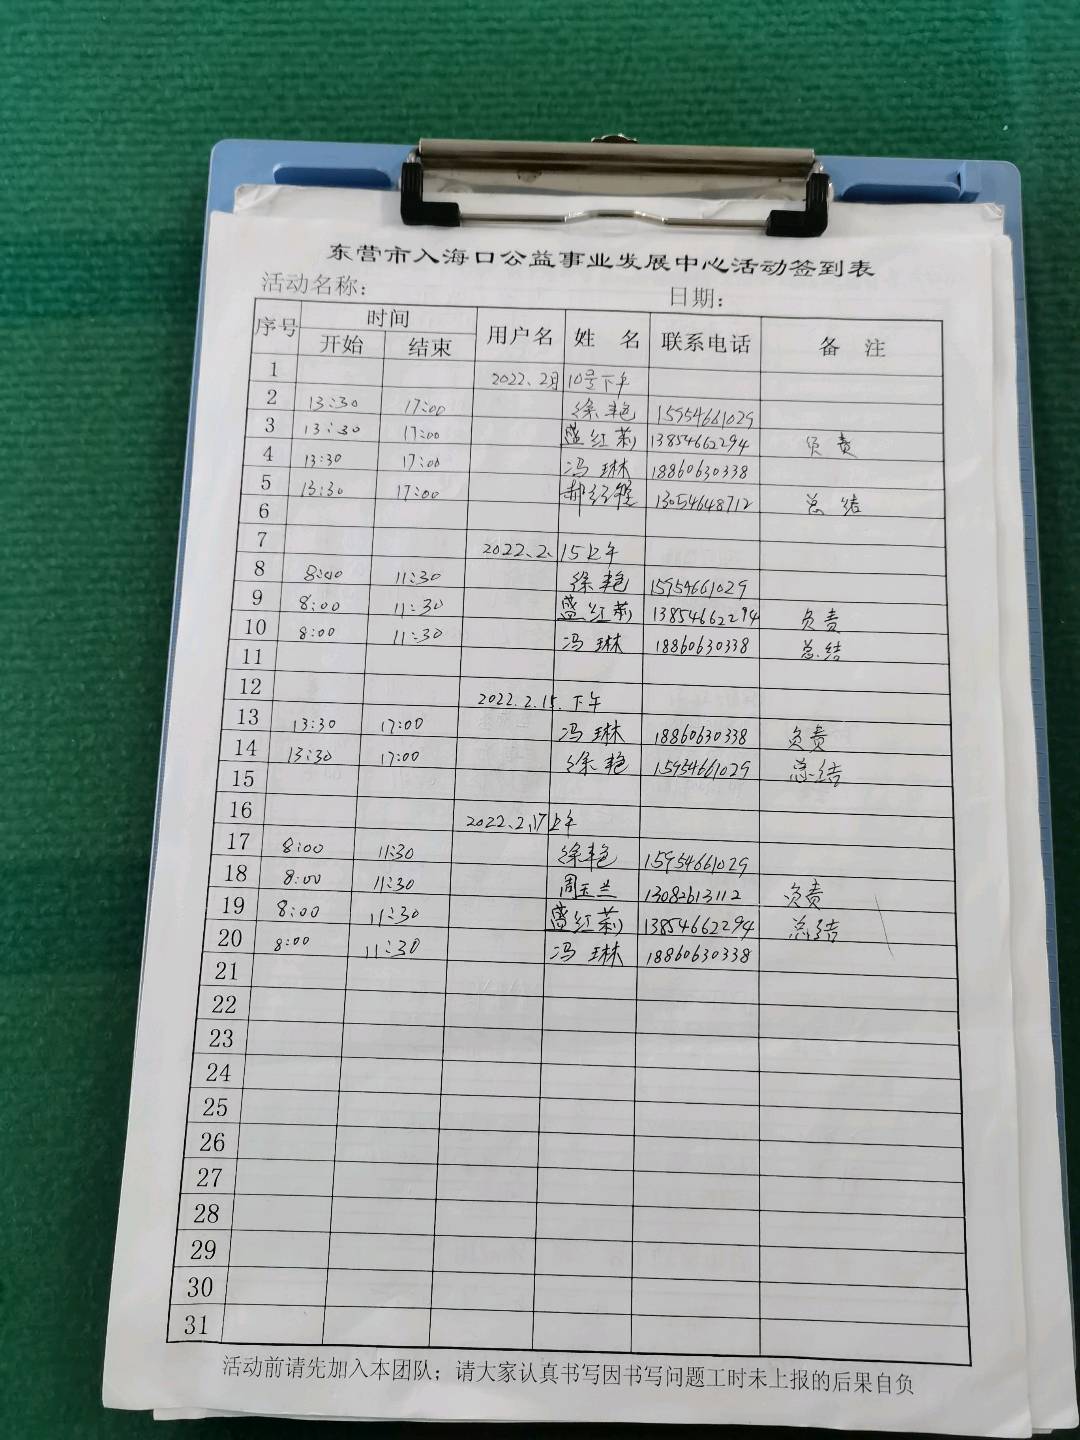 东营市入海口公益事业发展中心活动签到表
活动名称： 日期：
序号 时间 用户名 姓 名 联系电话 备 注
开始 结束
1 2022.2月10号下午
2 13:30 17:00 徐艳 15954661029
3 13:30 17:00 盛红莉 13854662294 负责
4 13:30 17:00 冯琳 18860630338
5 13:30 17:00 郝经 13054648712 总结
6
7 2022.2.15上午
8 8:00 11:30 徐艳 15954661029
9 8:00 11:30 盛红莉 13854662294 负责
10 8:00 11:30 冯琳 18860630338 总结
11
12 2022.2.15.下午
13 13:30 17:00 冯琳 18860630338 负责
14 13:30 17:00 徐艳 15954661029 总结
15
16 2022.2.17上午
17 8:00 11:30 徐艳 15954661029
18 8:00 11:30 周玉兰 13082613112 负责
19 8:00 11:30 盛红莉 13854662294 总结
20 8:00 11:30 冯琳 18860630338
21
22
23
24
25
26
27
28
29
30
31
活动前请先加入本团队；请大家认真书写因书写问题工时未上报的后果自负